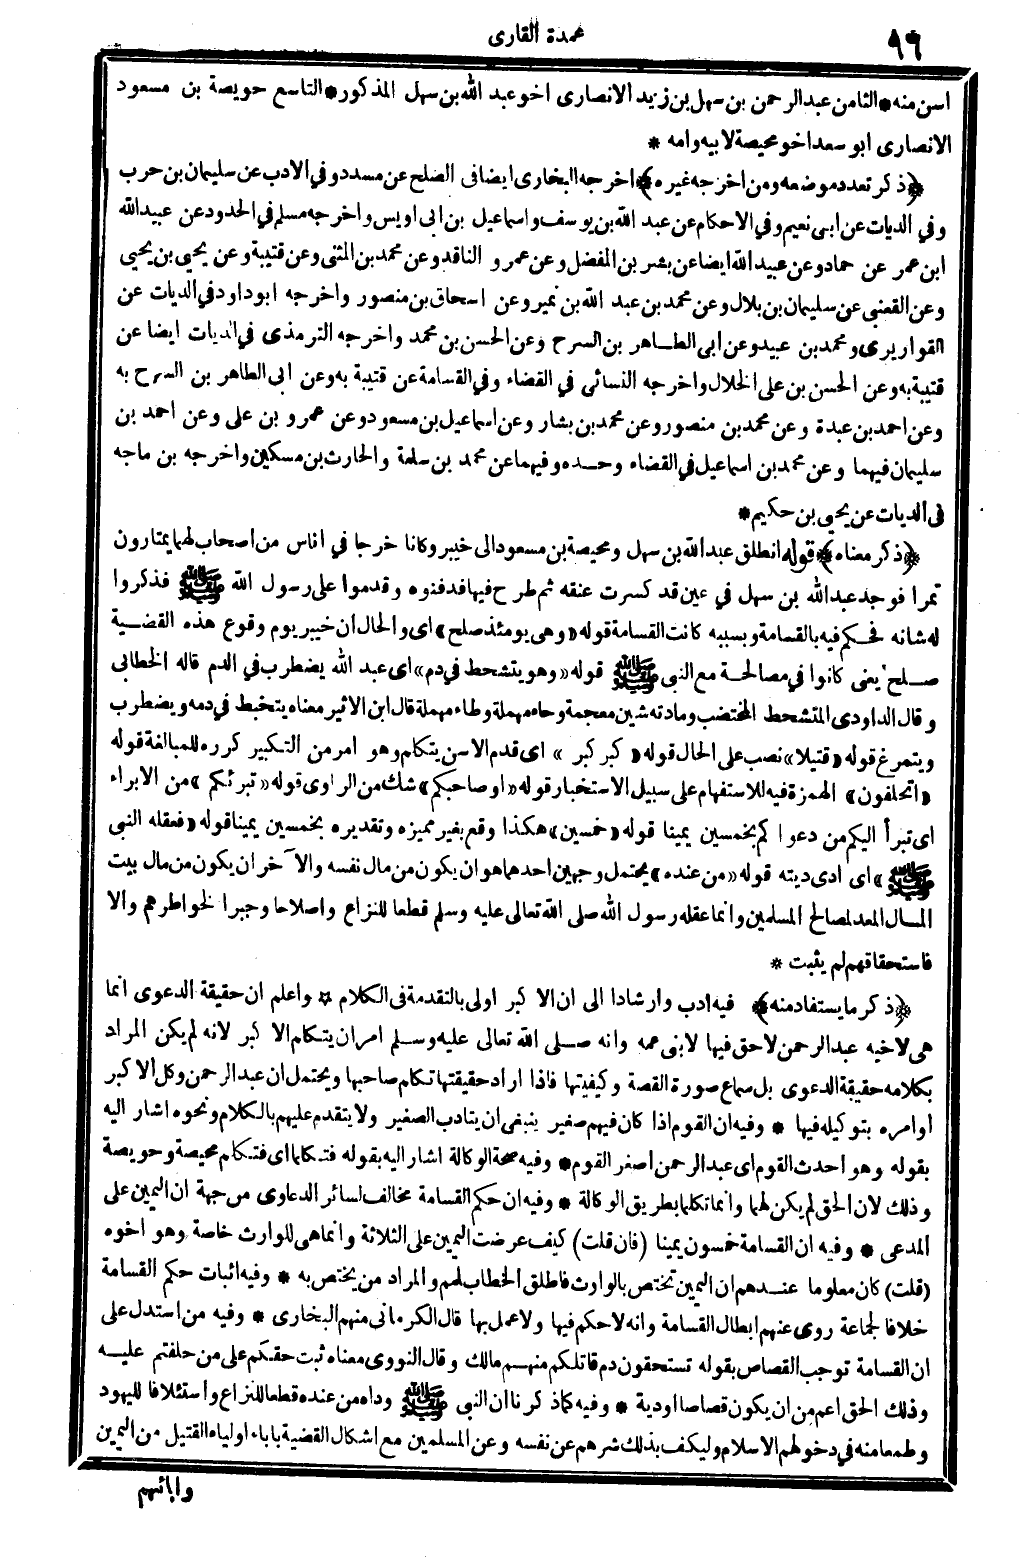 ٩٦
عمدة القارى
اسن منه * الثامن عبد الرحمن بن سهل بن زيد الانصارى اخو عبد الله بن سهل المذكور * التاسع حويصة بن مسعود
الانصارى ابو سعد اخو محيصة لابيه وامه *
﴿ذكر تعدد موضعه ومن اخرجه غيره﴾ اخرجه البخارى ايضا فى الصلح عن مسدد وفي الادب عن سليمان بن حرب
وفي الديات عن ابى نعيم وفي الاحكام عن عبد الله بن يوسف واسماعيل بن ابى اويس واخرجه مسلم في الحدود عن عبيد الله
ابن عمر عن حماد وعن عبيد الله ايضا عن بشر بن المفضل وعن عمرو الناقد وعن محمد بن المثنى وعن قتيبة وعن يحيي بن يحيي
وعن القعنبى عن سليمان بن بلال وعن محمد بن عبد الله بن نمير وعن اسحاق بن منصور واخرجه ابو داود في الديات عن
القواريرى ومحمد بن عبيد وعن ابى الطاهر بن السرح وعن الحسن بن محمد واخرجه الترمذى في الديات ايضا عن
قتيبة به وعن الحسن بن على الخلال واخرجه النسائى في القضاء وفي القسامة عن قتيبة به وعن ابى الطاهر بن السرح به
وعن احمد بن عبدة وعن محمد بن منصور وعن محمد بن بشار وعن اسماعيل بن مسعود وعن عمرو بن على وعن احمد بن
سليمان فيهما وعن محمد بن اسماعيل في القضاء وحده وفيهما عن محمد بن سلمة والحارث بن مسكين واخرجه بن ماجه
فى الديات عن يحيى بن حكيم *
﴿ذكر معناه﴾ قوله انطلق عبد الله بن سهل ومحيصة بن مسعود الى خيبر وكانا خرجا في اناس من اصحاب لهما يمتارون
تمرا فوجد عبد الله بن سهل في عين قد كسرت عنقه ثم طرح فيها فدفنوه وقدموا على رسول الله ﷺ فذكروا
له شانه فحكم فيه بالقسامة وبسببه كانت القسامة قوله «وهى يومئذ صلح» اى والحال ان خيبر يوم وقوع هذه القضية
صلح يعنى كانوا في مصالحة مع النبى ﷺ قوله «وهو يتشحط في دم» اى عبد الله يضطرب في الدم قاله الخطابى
وقال الداودى المتشحط المختضب ومادته شين معجمة وحاء مهملة وطاء مهملة قال ابن الاثير معناه يتخبط في دمه ويضطرب
ويتمرغ قوله «قتيلا» نصب على الحال قوله «كبر كبر» اى قدم الاسن يتكلم وهو امر من التكبير كرره للمبالغة قوله
«اتحلفون» الهمزة فيه للاستفهام على سبيل الاستخبار قوله «او صاحبكم» شك من الراوى قوله «تبرئكم» من الابراء
اى تبرأ اليكم من دعواكم بخمسين يمينا قوله «خمسين» هكذا وقع بغير مميزه وتقديره بخمسين يمينا قوله «فعقله النبى
ﷺ» اى ادى ديته قوله «من عنده» يحتمل وجهين احدهما هو ان يكون من مال نفسه والآخر ان يكون من مال بيت
المال المعد لمصالح المسلمين وانما عقله رسول الله صلى الله تعالى عليه وسلم قطعا للنزاع واصلاحا وجبرا لخواطرهم والا
فاستحقاقهم لم يثبت *
﴿ذكر ما يستفاد منه﴾ فيه ادب وارشاد الى ان الاكبر اولى بالتقدمة فى الكلام * واعلم ان حقيقة الدعوى انما
هى لاخيه عبد الرحمن لا حق فيها لابنى عمه وانه صلى الله تعالى عليه وسلم امر ان يتكلم الاكبر لانه لم يكن المراد
بكلامه حقيقة الدعوى بل سماع صورة القصة وكيفيتها فاذا اراد حقيقتها تكلم صاحبها ويحتمل ان عبد الرحمن وكل الاكبر
او امره بتوكيله فيها * وفيه ان القوم اذا كان فيهم صغير ينبغى ان يتادب الصغير ولا يتقدم عليهم بالكلام ونحوه اشار اليه
بقوله وهو احدث القوم اى عبد الرحمن اصغر القوم * وفيه صحة الوكالة اشار اليه بقوله فتكلما اى فتكلم محيصة وحويصة
وذلك لان الحق لم يكن لهما وانما تكلما بطريق الوكالة * وفيه ان حكم القسامة مخالف لسائر الدعاوى من جهة ان اليمين على
المدعى * وفيه ان القسامة خمسون يمينا (فان قلت) كيف عرضت اليمين على الثلاثة وانما هى للوارث خاصة وهو اخوه
(قلت) كان معلوما عندهم ان اليمين تختص بالوارث فاطلق الخطاب لهم والمراد من يختص به * وفيه اثبات حكم القسامة
خلافا لجماعة روى عنهم ابطال القسامة وانه لا حكم فيها ولا عمل بها قال الكرمانى منهم البخارى * وفيه من استدل على
ان القسامة توجب القصاص بقوله تستحقون دم قاتلكم منهم مالك وقال النووى معناه ثبت حقكم على من حلفتم عليه
وذلك الحق اعم من ان يكون قصاصا او دية * وفيه كما ذكرنا ان النبى ﷺ وداه من عنده قطعا للنزاع واستئلافا لليهود
وطمعا منه في دخولهم الاسلام وليكف بذلك شرهم عن نفسه وعن المسلمين مع اشكال القضية باباء اولياء القتيل من اليمين
وابائهم